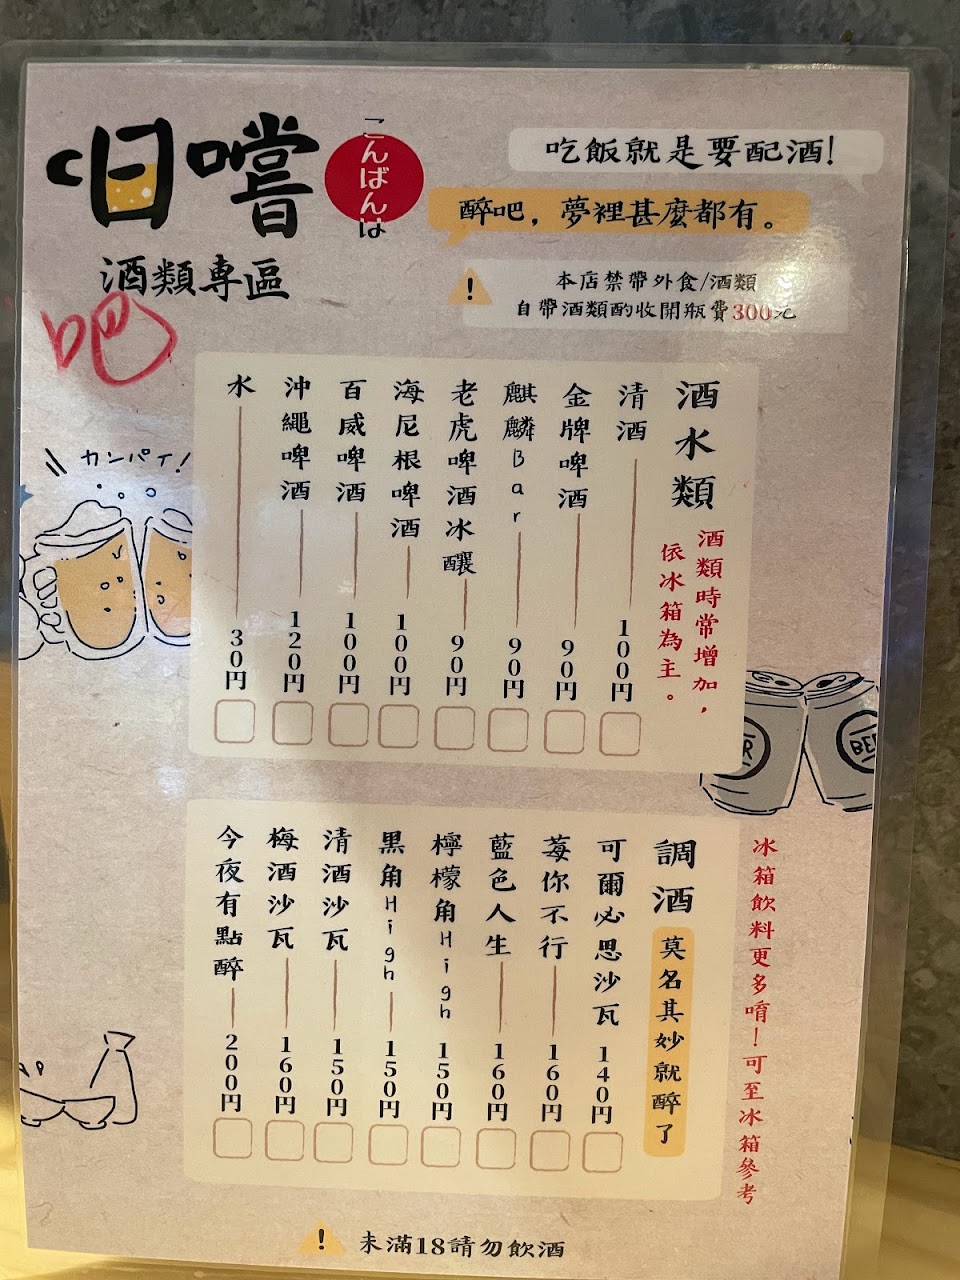 日嚐
こんばんは
吃飯就是要配酒!
醉吧，夢裡甚麼都有。
酒類專區
吧
本店禁帶外食/酒類
自帶酒類酌收開瓶費300元
酒水類
酒類時常增加，
依冰箱為主。
清酒 100円
金牌啤酒 90円
麒麟Bar 90円
老虎啤酒冰釀 90円
海尼根啤酒 100円
百威啤酒 100円
沖繩啤酒 120円
水 30円
カンパイ!
BEER
調酒
莫名其妙就醉了
可爾必思沙瓦 140円
莓你不行 160円
藍色人生 160円
檸檬角High 150円
黑角High 150円
清酒沙瓦 150円
梅酒沙瓦 160円
今夜有點醉 200円
冰箱飲料更多唷！可至冰箱參考
! 未滿18請勿飲酒